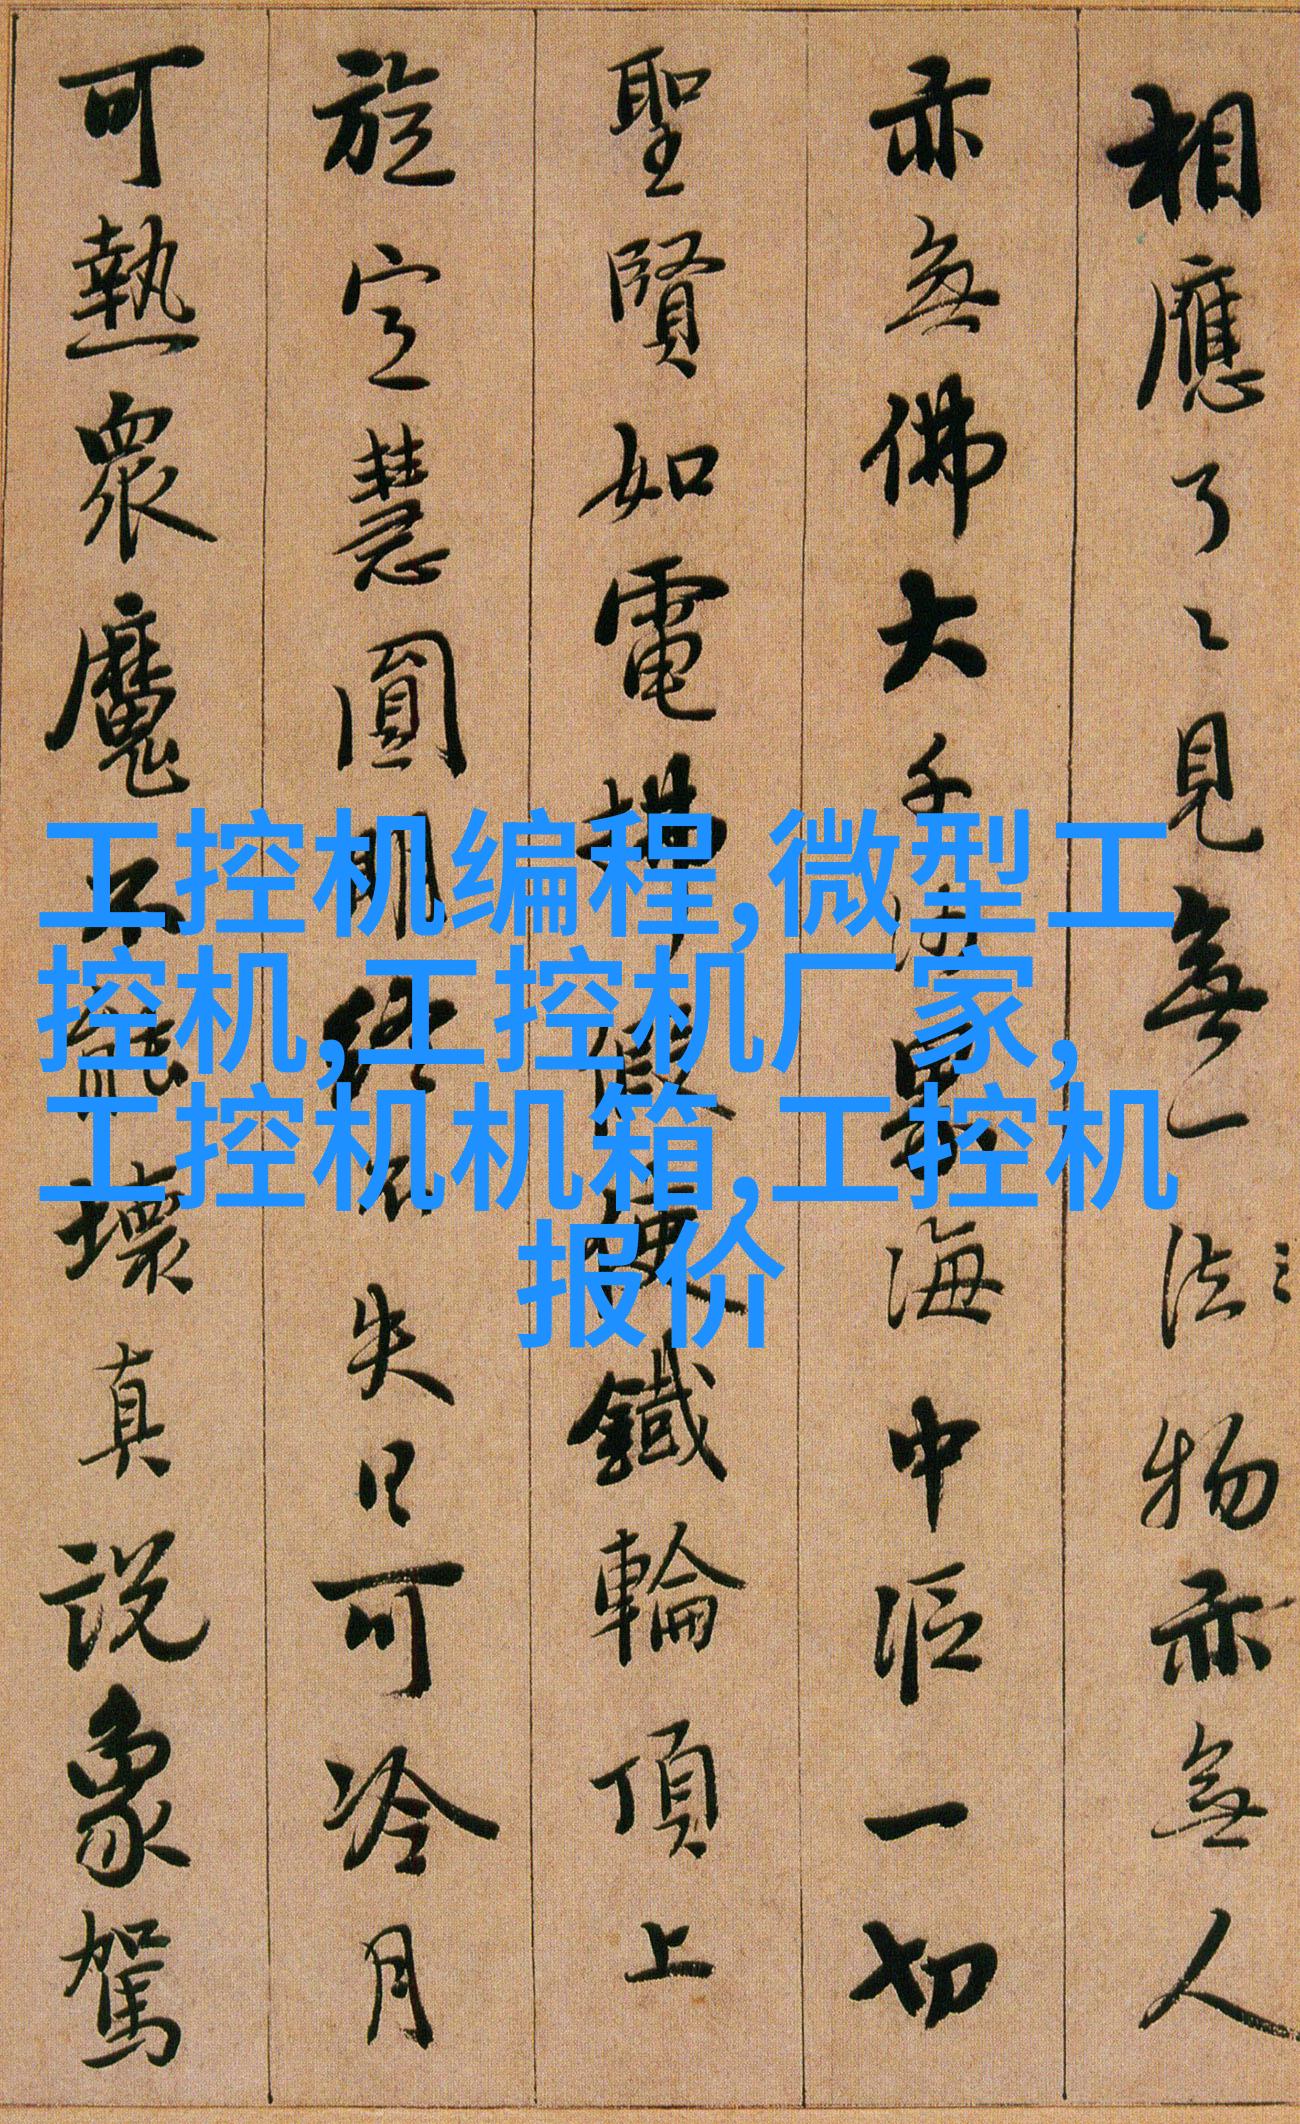 相應了〻見無一法物亦無人
亦無佛大千沙界海中漚一切
聖賢如電拂假使鐵輪頂上
旋定慧圓明終不失日可冷月
可熱眾魔不能壞真說象駕
工控机编程,微型工
控机,工控机厂家,
工控机机箱,工控机
报价